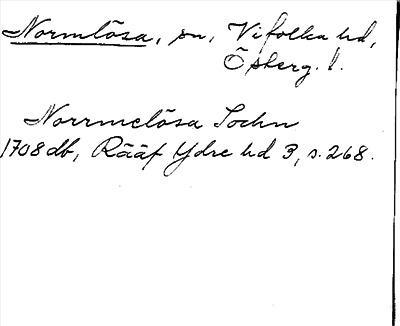 Normlösa, sn, Vifolka hd,
Österg. l.
Norrmelösa Sochn
1708 db, Rääf Ydre hd 3, s. 268.